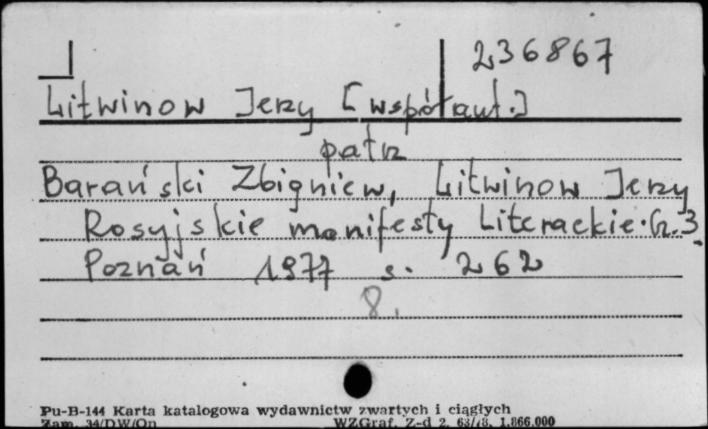 236867
Litwinow Jerzy [współaut.]
patrz
Barański Zbigniew, Litwinow Jerzy
Rosyjskie manifesty literackie. Cz. 3.
Poznań 1977 s. 262
8.
Pu-B-144 Karta katalogowa wydawnictw zwartych i ciągłych
Zam. 34/DW/On WZGraf. Z-d 2. 63/78. 1.866.000